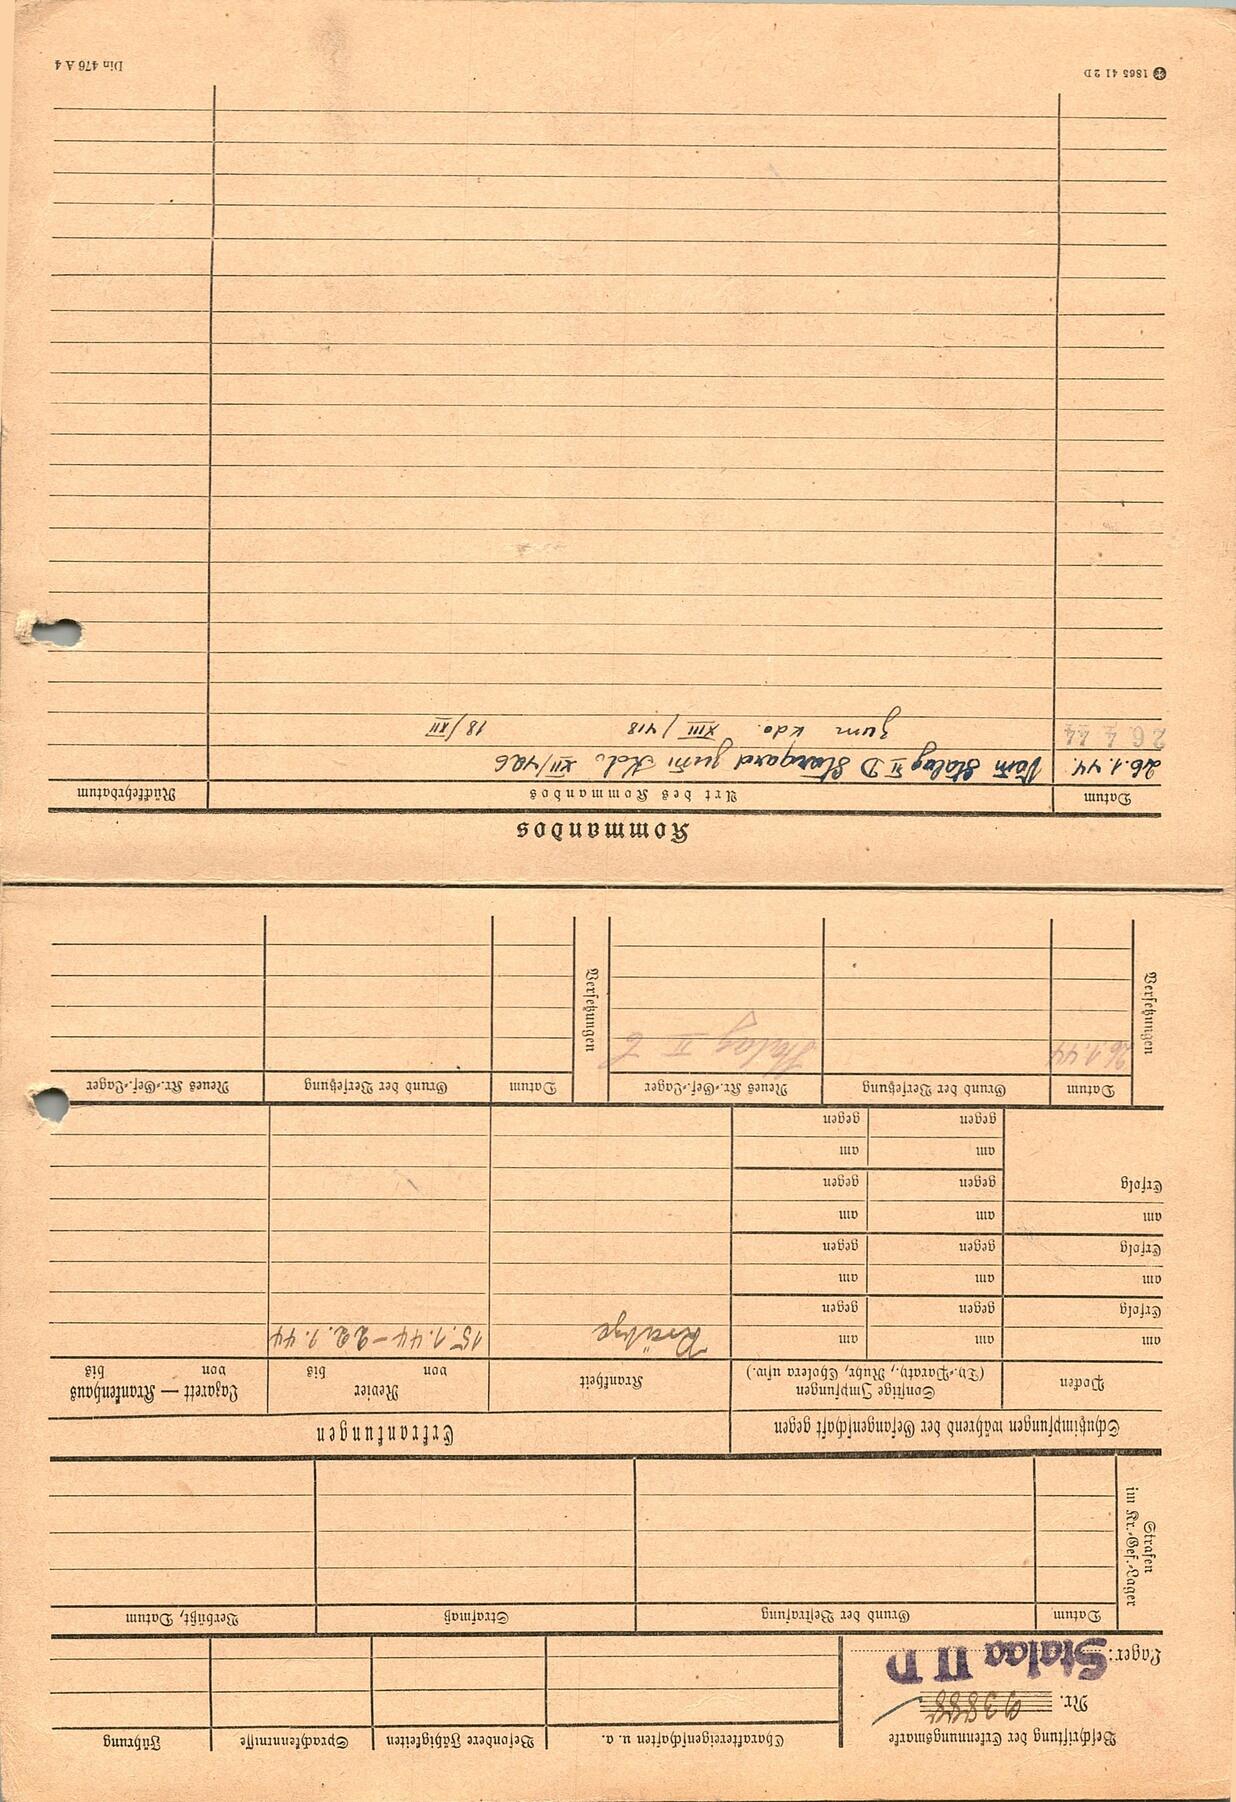 Beschriftung der Erkennungsmarke
Nr. 93888
Lager: Stalag II D
Charaktereigenschaften u. a.
Besondere Fähigkeiten
Sprachkenntnisse
Führung
Strafen
im Kr.-Gef.-Lager
Datum
Grund der Bestrafung
Strafmaß
Verbüßt, Datum
Schutzimpfungen während der Gefangenschaft gegen
Erkrankungen
Pocken
Sonstige Impfungen
(Ty.-Paraty., Ruhr, Cholera usw.)
Krankheit
Revier
von bis
Lazarett — Krankenhaus
von bis
am
am
am
Krätze
15.1.44–22.1.44
Erfolg
gegen
gegen
am
am
am
Erfolg
gegen
gegen
am
am
am
Erfolg
gegen
gegen
am
am
gegen
gegen
Versetzungen
Datum
Grund der Versetzung
Neues Kr.-Gef.-Lager
Versetzungen
Datum
Grund der Versetzung
Neues Kr.-Gef.-Lager
26.1.44
Stalag II
Kommandos
Datum
Art des Kommandos
Rückkehrdatum
26.1.44. Vom Stalag II D Stargard zum Kdo. XII/426
26 4 44 zum Kdo. XIII/418 18/XII
1865 41 2 D
Din 476 A 4